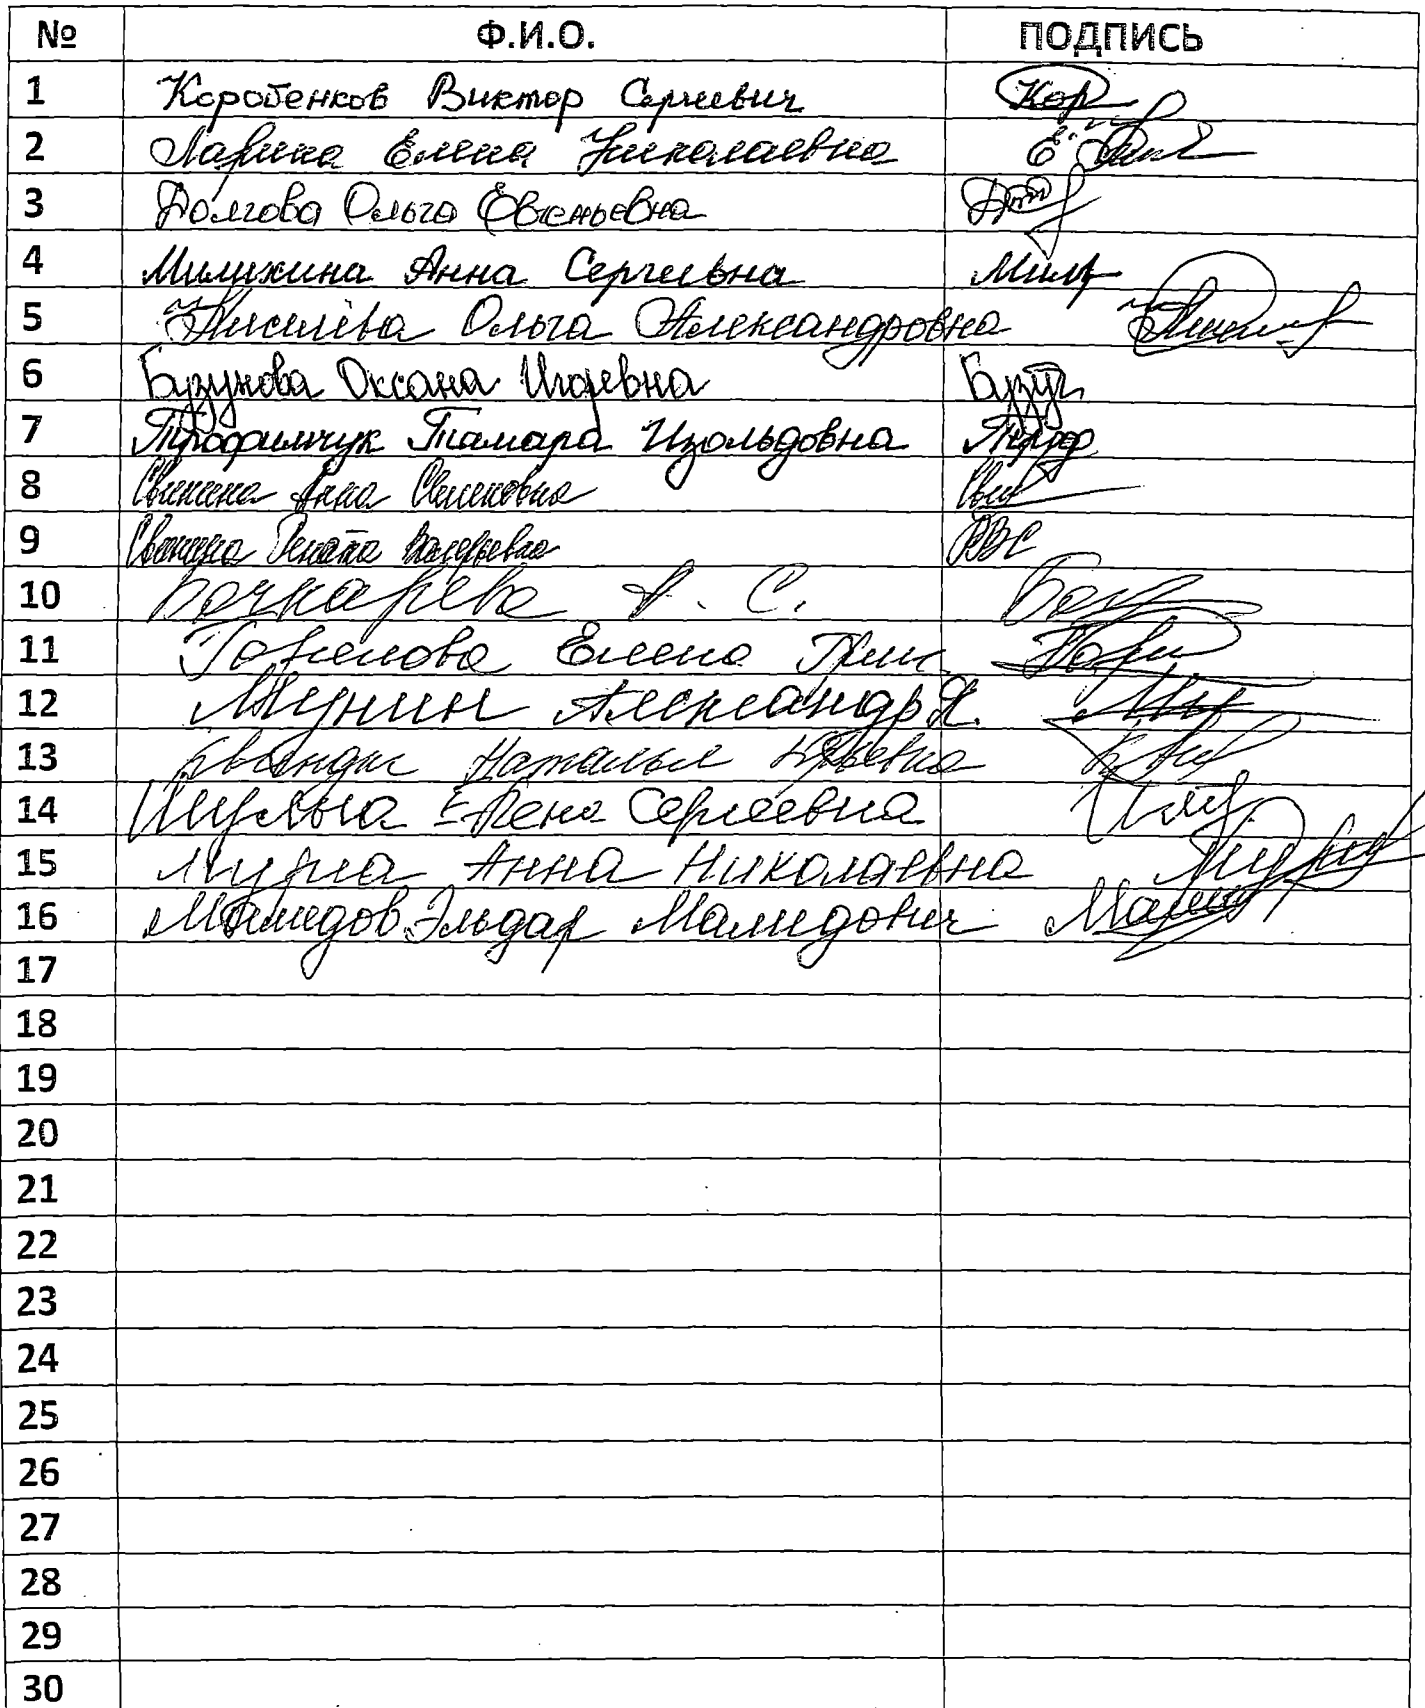 № Ф.И.О. ПОДПИСЬ
1 Коробенков Виктор Сергеевич Кор
2 Ларина Елена Николаевна
3 Долгова Ольга Евгеньевна
4 Милихина Анна Сергеевна Мил
5 Киселёва Ольга Александровна
6 Бузунова Оксана Игоревна Бузун
7 Трофимчук Тамара Изольдовна Троф
8 Свинина Анна Семеновна Сви
9 Свинина Рената Валерьевна РВС
10 Бочкарева А. С. Боч
11 Елена
12 Мунин Александр
13 Наталья Юрьевна
14 Шульга Елена Сергеевна
15 Анна Николаевна
16 Мамедов Эльдар Мамедович
17
18
19
20
21
22
23
24
25
26
27
28
29
30